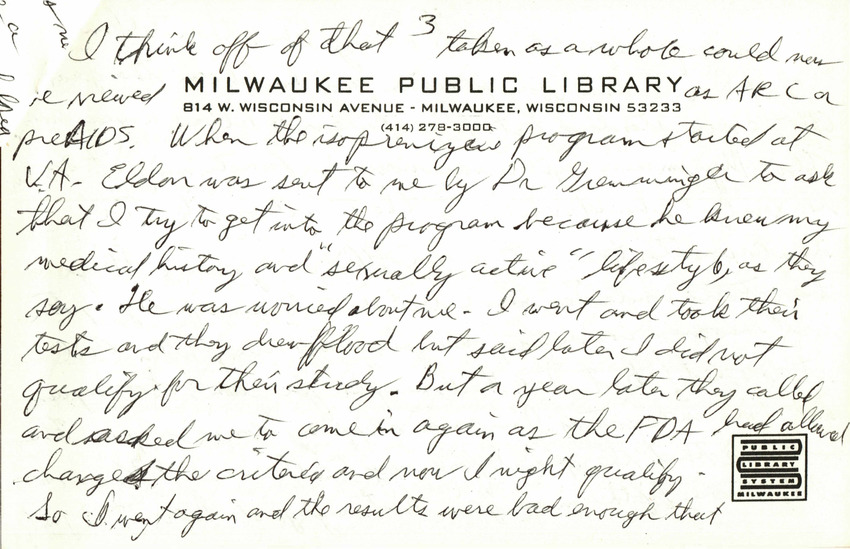 I think off of that 3 taken as a whole could now
be viewed as ARC or
MILWAUKEE PUBLIC LIBRARY
814 W. WISCONSIN AVENUE - MILWAUKEE, WISCONSIN 53233
(414) 278-3000
preAIDS. When the isoprenizene program started at
V.A. Eldon was sent to me by Dr to ask
that I try to get into the program because he knew my
medical history and "sexually active" lifestyle, as they
say. He was worried about me. I went and took their
tests and they drew blood but said later I did not
qualify for their study. But a year later they called
and asked me to come in again as the FDA had allowed
changed the criteria and now I might qualify.
So I went again and the results were bad enough that
PUBLIC
LIBRARY
SYSTEM
MILWAUKEE